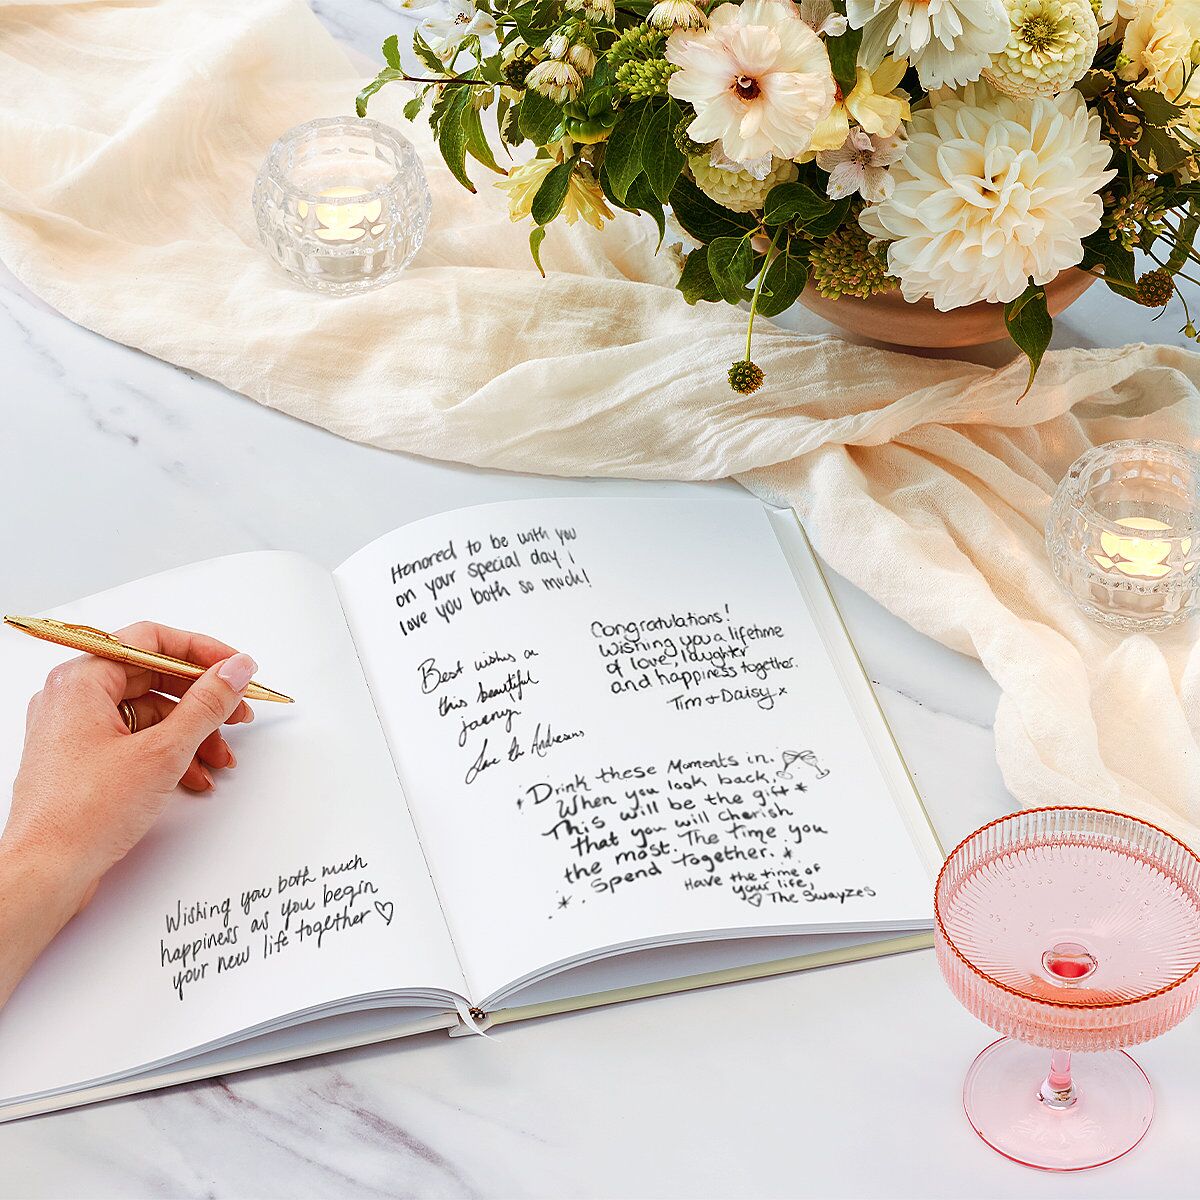 Wishing you both much
happiness as you begin
your new life together ♡
Honored to be with you
on your special day I
love you both so much!
Best wishes on
this beautiful
journey
Love The Andersons
Congratulations!
Wishing you a lifetime
of love, laughter
and happiness together.
Tim + Daisy x
Drink these Moments in.
When you look back,
This will be the gift
that you will cherish
the most. The time you
spend together.
Have the time of
your life,
♡ The Swayzes